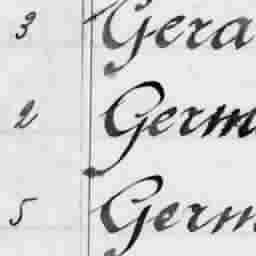 3 Gera
2 Germ
5 Germ